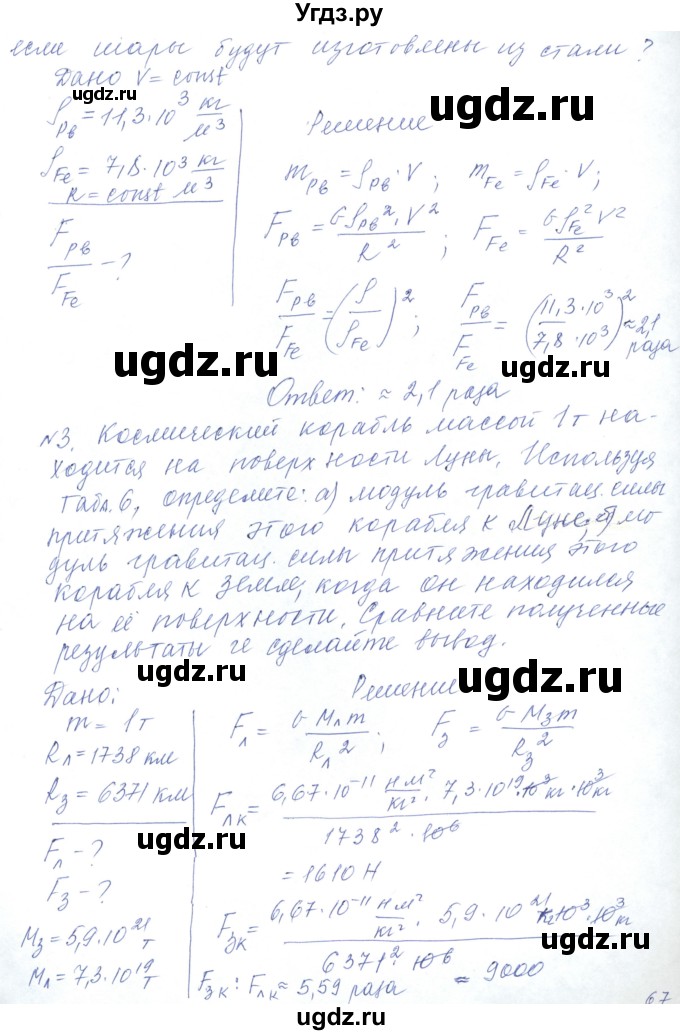 Угдз.ру
если шары будут изготовлены из стали?
Дано V = const
ρPb = 11,3·10³ кг/м³
ρFe = 7,8·10³ кг/м³
R = const
FPb/FFe - ?
Решение
mPb = ρPb·V; mFe = ρFe·V;
FPb = GρPb²·V²/R²; FFe = GρFe²V²/R²
FPb/FFe = (ρ/ρFe)²; FPb/FFe = (11,3·10³/7,8·10³)² ≈ 2,1 раза
Ответ: ≈ 2,1 раза
№3. Космический корабль массой 1т на-
ходится на поверхности Луны. Используя
табл. 6, определите: а) модуль гравитац. силы
притяжения этого корабля к Луне; б) мо
дуль гравитац. силы притяжения этого
корабля к Земле, когда он находился
на её поверхности. Сравните полученные
результаты и сделайте вывод.
Дано:
m = 1т
Rл = 1738 км
Rз = 6371 км
Fл - ?
Fз - ?
Mз = 5,9·10²¹ т
Mл = 7,3·10¹⁹ т
Решение
Fл = G Mл m/Rл²; Fз = G Mз m/Rз²
Fлк = 6,67·10⁻¹¹ нм²/кг² · 7,3·10¹⁹·10³ кг·10³ кг / 1738²·10⁶
= 1610 Н
Fзк = 6,67·10⁻¹¹ нм²/кг² · 5,9·10²¹·10³·10³ кг / 6371²·10⁶ ≈ 9000
Fзк : Fлк ≈ 5,59 раза
67
ugdz.ru
ugdz.ru
ugdz.ru
ugdz.ru
ugdz.ru
ugdz.ru
ugdz.ru
ugdz.ru
ugdz.ru
ugdz.ru
ugdz.ru
ugdz.ru